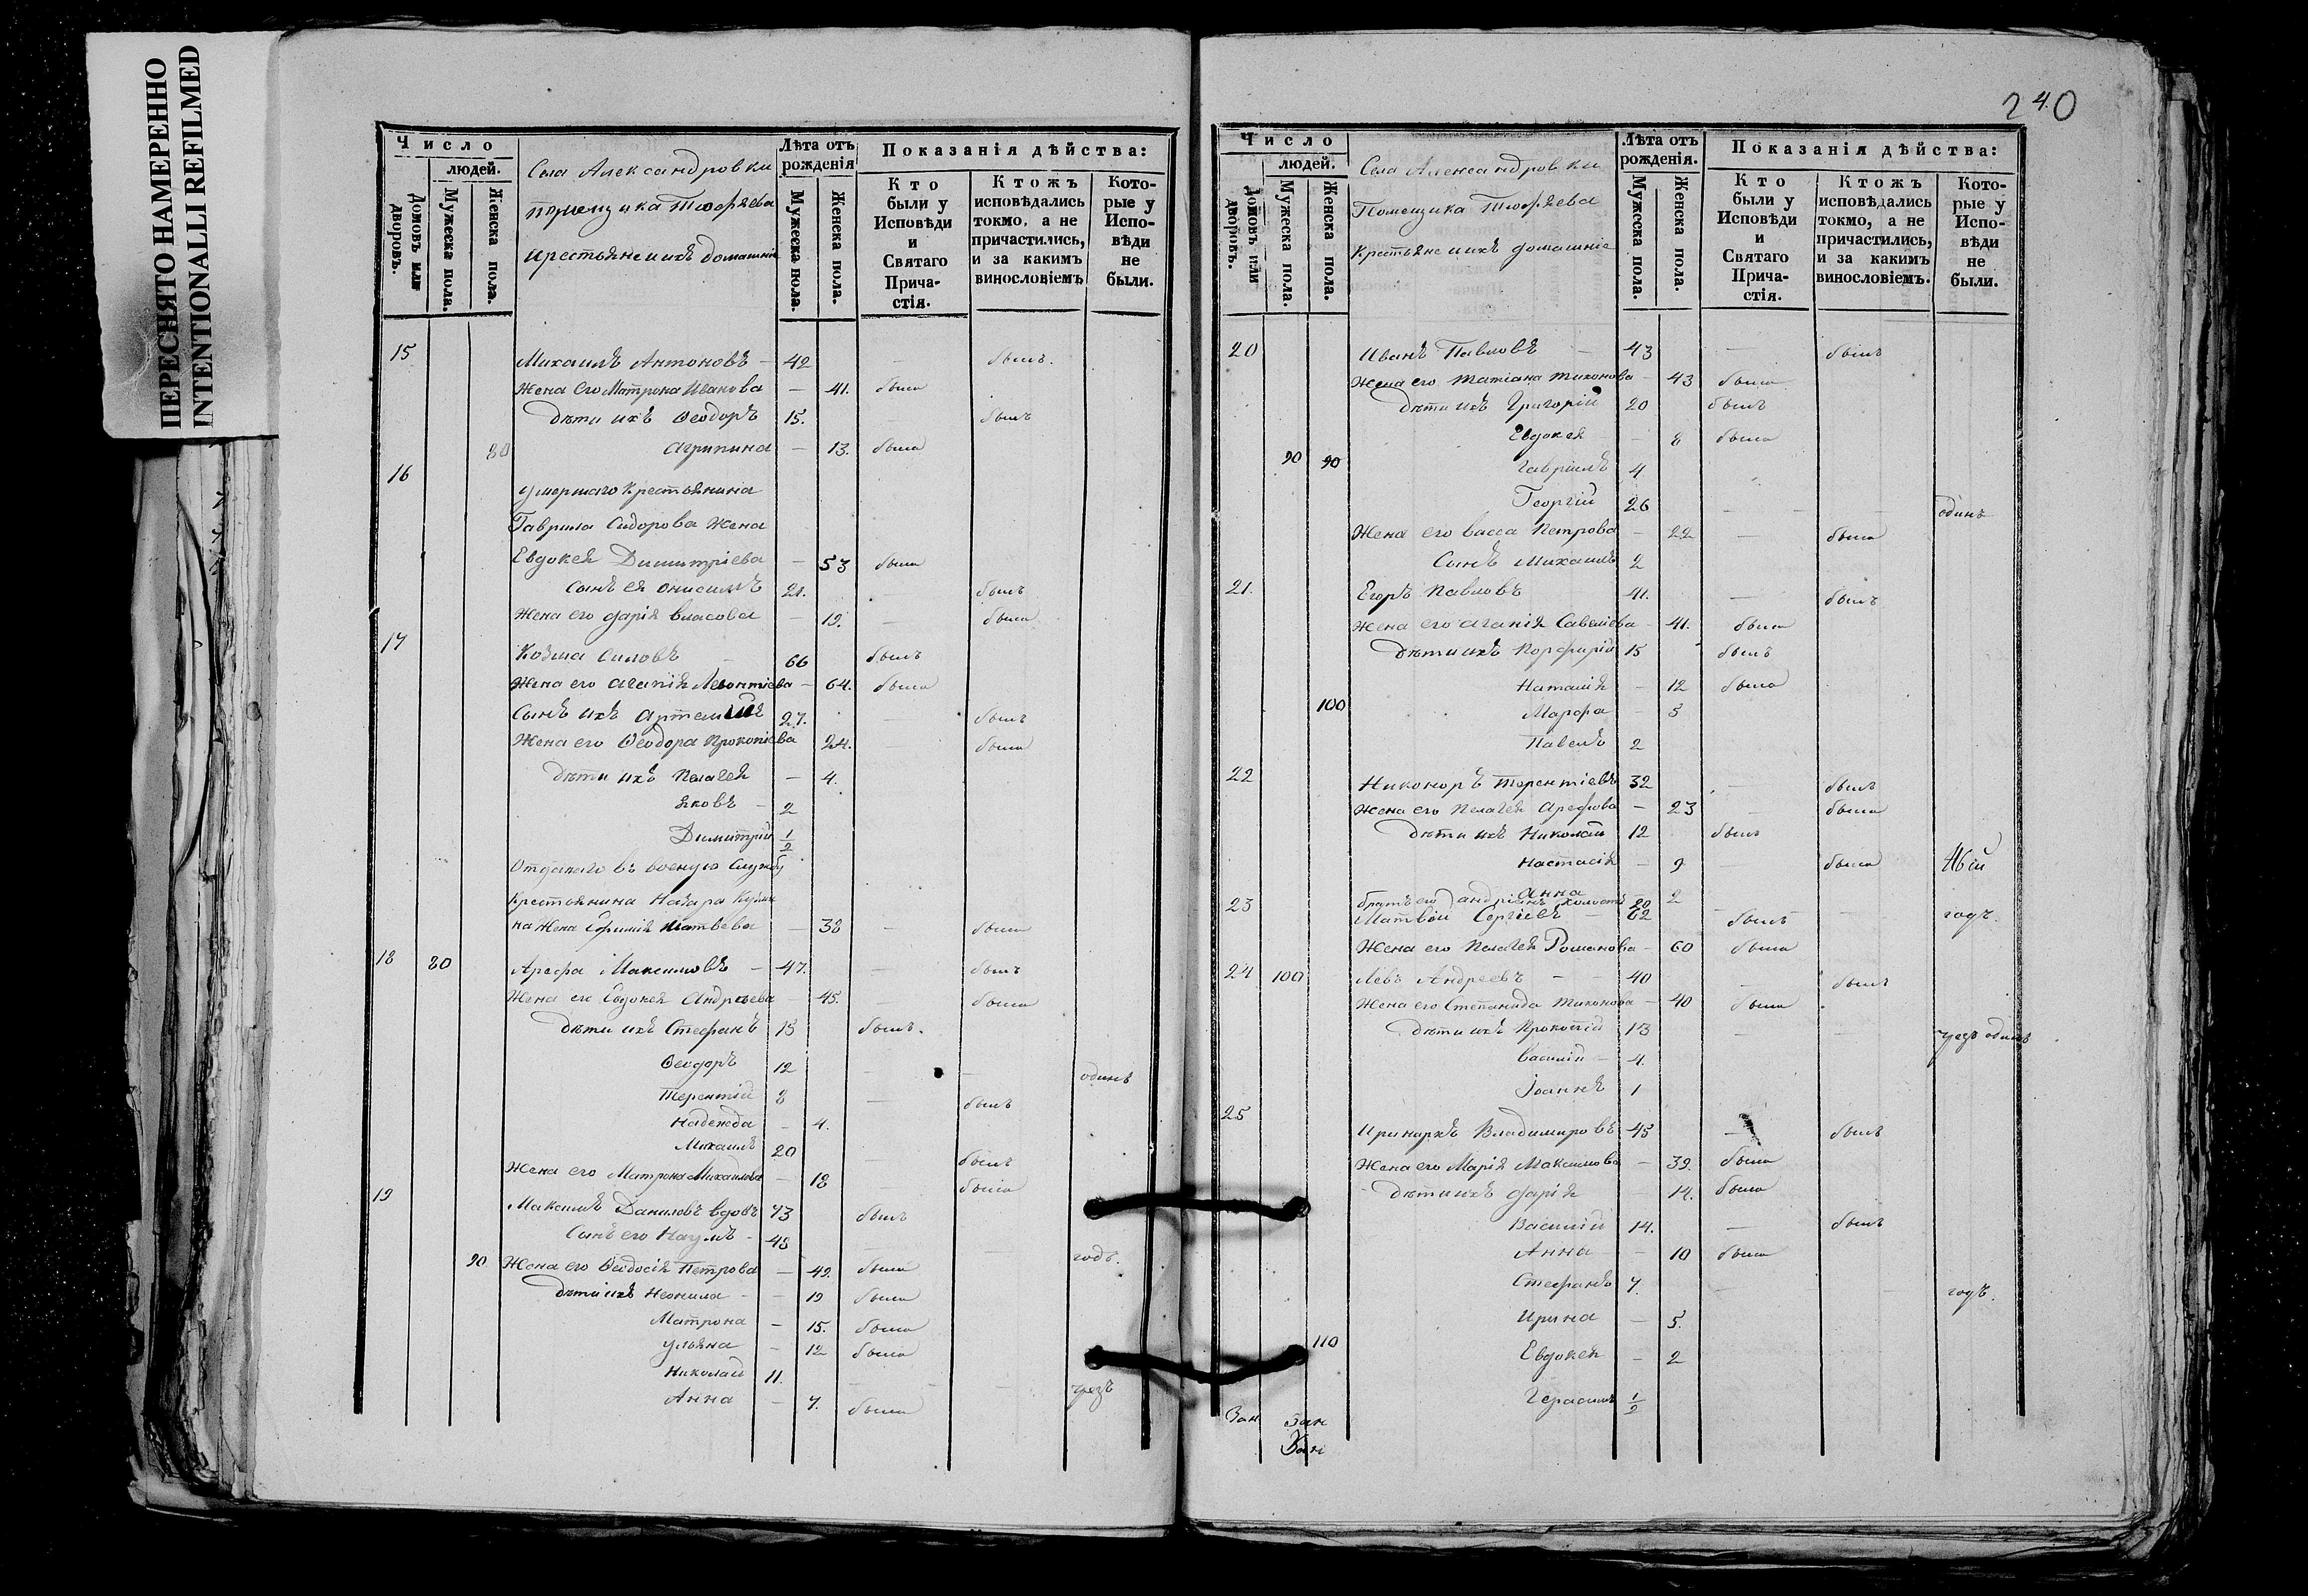 ПЕРЕСНЯТО НАМЕРЕННО
INTENTIONALLI REFILMED
Число
людей.
Домовъ или дворовъ.
Мужеска пола.
Женска пола.
Села Александровки
помещика Тюфяева
крестьяне и ихъ домашніе
Лѣта отъ рожденія
Мужеска пола.
Женска пола.
Показанія дѣйства:
Кто были у Исповѣди и Святаго Прича-стія.
Ктожъ исповѣдались токмо, а не причастились, и за какимъ винословіемъ
Кото-рые у Испо-вѣди не были.
15 Михаилъ Антоновъ — 42 былъ.
Жена его Матрона Иванова — 41. была
Дѣти ихъ Ѳеодоръ 15. — былъ
80 Агрипина — 13. была
16 умершаго крестьянина
Гаврила Сидорова жена
Евдокея Димитріева — 53 была
Сынъ ея Онисимъ 21. — былъ
Жена его Дарія Власова — 19. — была
17 Козма Силовъ — 66 былъ
Жена его Агапія Леонтіева — 64. была
Сынъ ихъ Артемій 27. былъ
Жена его Ѳеодора Прокопіева 24. — была
Дѣти ихъ Пелагея — 4.
Яковъ — 2
Димитрій 1/2
Отданаго въ военую службу
Крестьянина Назара
на жена Ефимія Матвѣева — 38 — была
18 80 Арефа Максимовъ — 47. — былъ
Жена его Евдокея Андрѣева — 45. — была
Дѣти ихъ Стефанъ 15 былъ.
Ѳеодоръ 12 — — одинъ
Терентій 8 — былъ
Надежда — 4.
Михаилъ 20 — былъ
Жена его Матрона Михаилова — 18 — была
19 Максимъ Даниловъ вдовъ 73 былъ
Сынъ его Наумъ — 48 — — годъ.
90 Жена его Ѳеодосія Петрова — 49. была
Дѣти ихъ Неонила — — 19 была
Матрона — 15. была
Ульяна — 12 была
Николай 11. — — чрезъ
Анна — 7. была
240
Число
людей.
Домовъ или дворовъ.
Мужеска пола.
Женска пола.
Села Александровки
Помещика Тюфяева
Крестьяне и ихъ домашніе
Лѣта отъ рожденія.
Мужеска пола.
Женска пола.
Показанія дѣйства:
Кто были у Исповѣди и Святаго Прича-стія.
Ктожъ исповѣдались токмо, а не причастились, и за какимъ винословіемъ.
Кото-рые у Испо-вѣди не были.
20 Иванъ Павловъ — 43 — былъ
Жена его Татіана Тихонова — 43 была
Дѣти ихъ Григорій 20 былъ
Евдокея — 8 была
90 90 Гавріилъ 4
Георгій 26 — — одинъ
Жена его Васса Петрова — 22 — была
Сынъ Михаилъ 2
21. Егоръ Павловъ 41. — былъ
Жена его Агапія Савеліева — 41. была
Дѣти ихъ Порфирій 15 былъ
Наталія — 12 была
100 Марфа — 5
Павелъ 2
22 Никоноръ Терентіевъ 32 — былъ
Жена его Пелагея Арефова — 23 — была
Дѣти ихъ Николай 12 былъ
Настасія — 9 — была
Анна 2
братъ его Андріянъ холостъ 20 — — годъ.
23 Матвѣй Сергіевъ — 62 былъ
Жена его Пелагея Романова — 60 была
24 100 Левъ Андреевъ — — 40 — былъ
Жена его Степанида Тихонова — 40 была
Дѣти ихъ Прокопій 13 — — чрезъ одинъ
Василій — 4.
Іоаннъ 1
25 Иринархъ Владимировъ 45 — былъ
Жена его Марія Максимова — 39. была
Дѣти ихъ Дарія — 14. была
Василій 14. — былъ
Анна — 10 была
Стефанъ 7. — — годъ.
Ирина — 5.
110 Евдокея — 2
Герасимъ 1/2
Зан зан
Зан